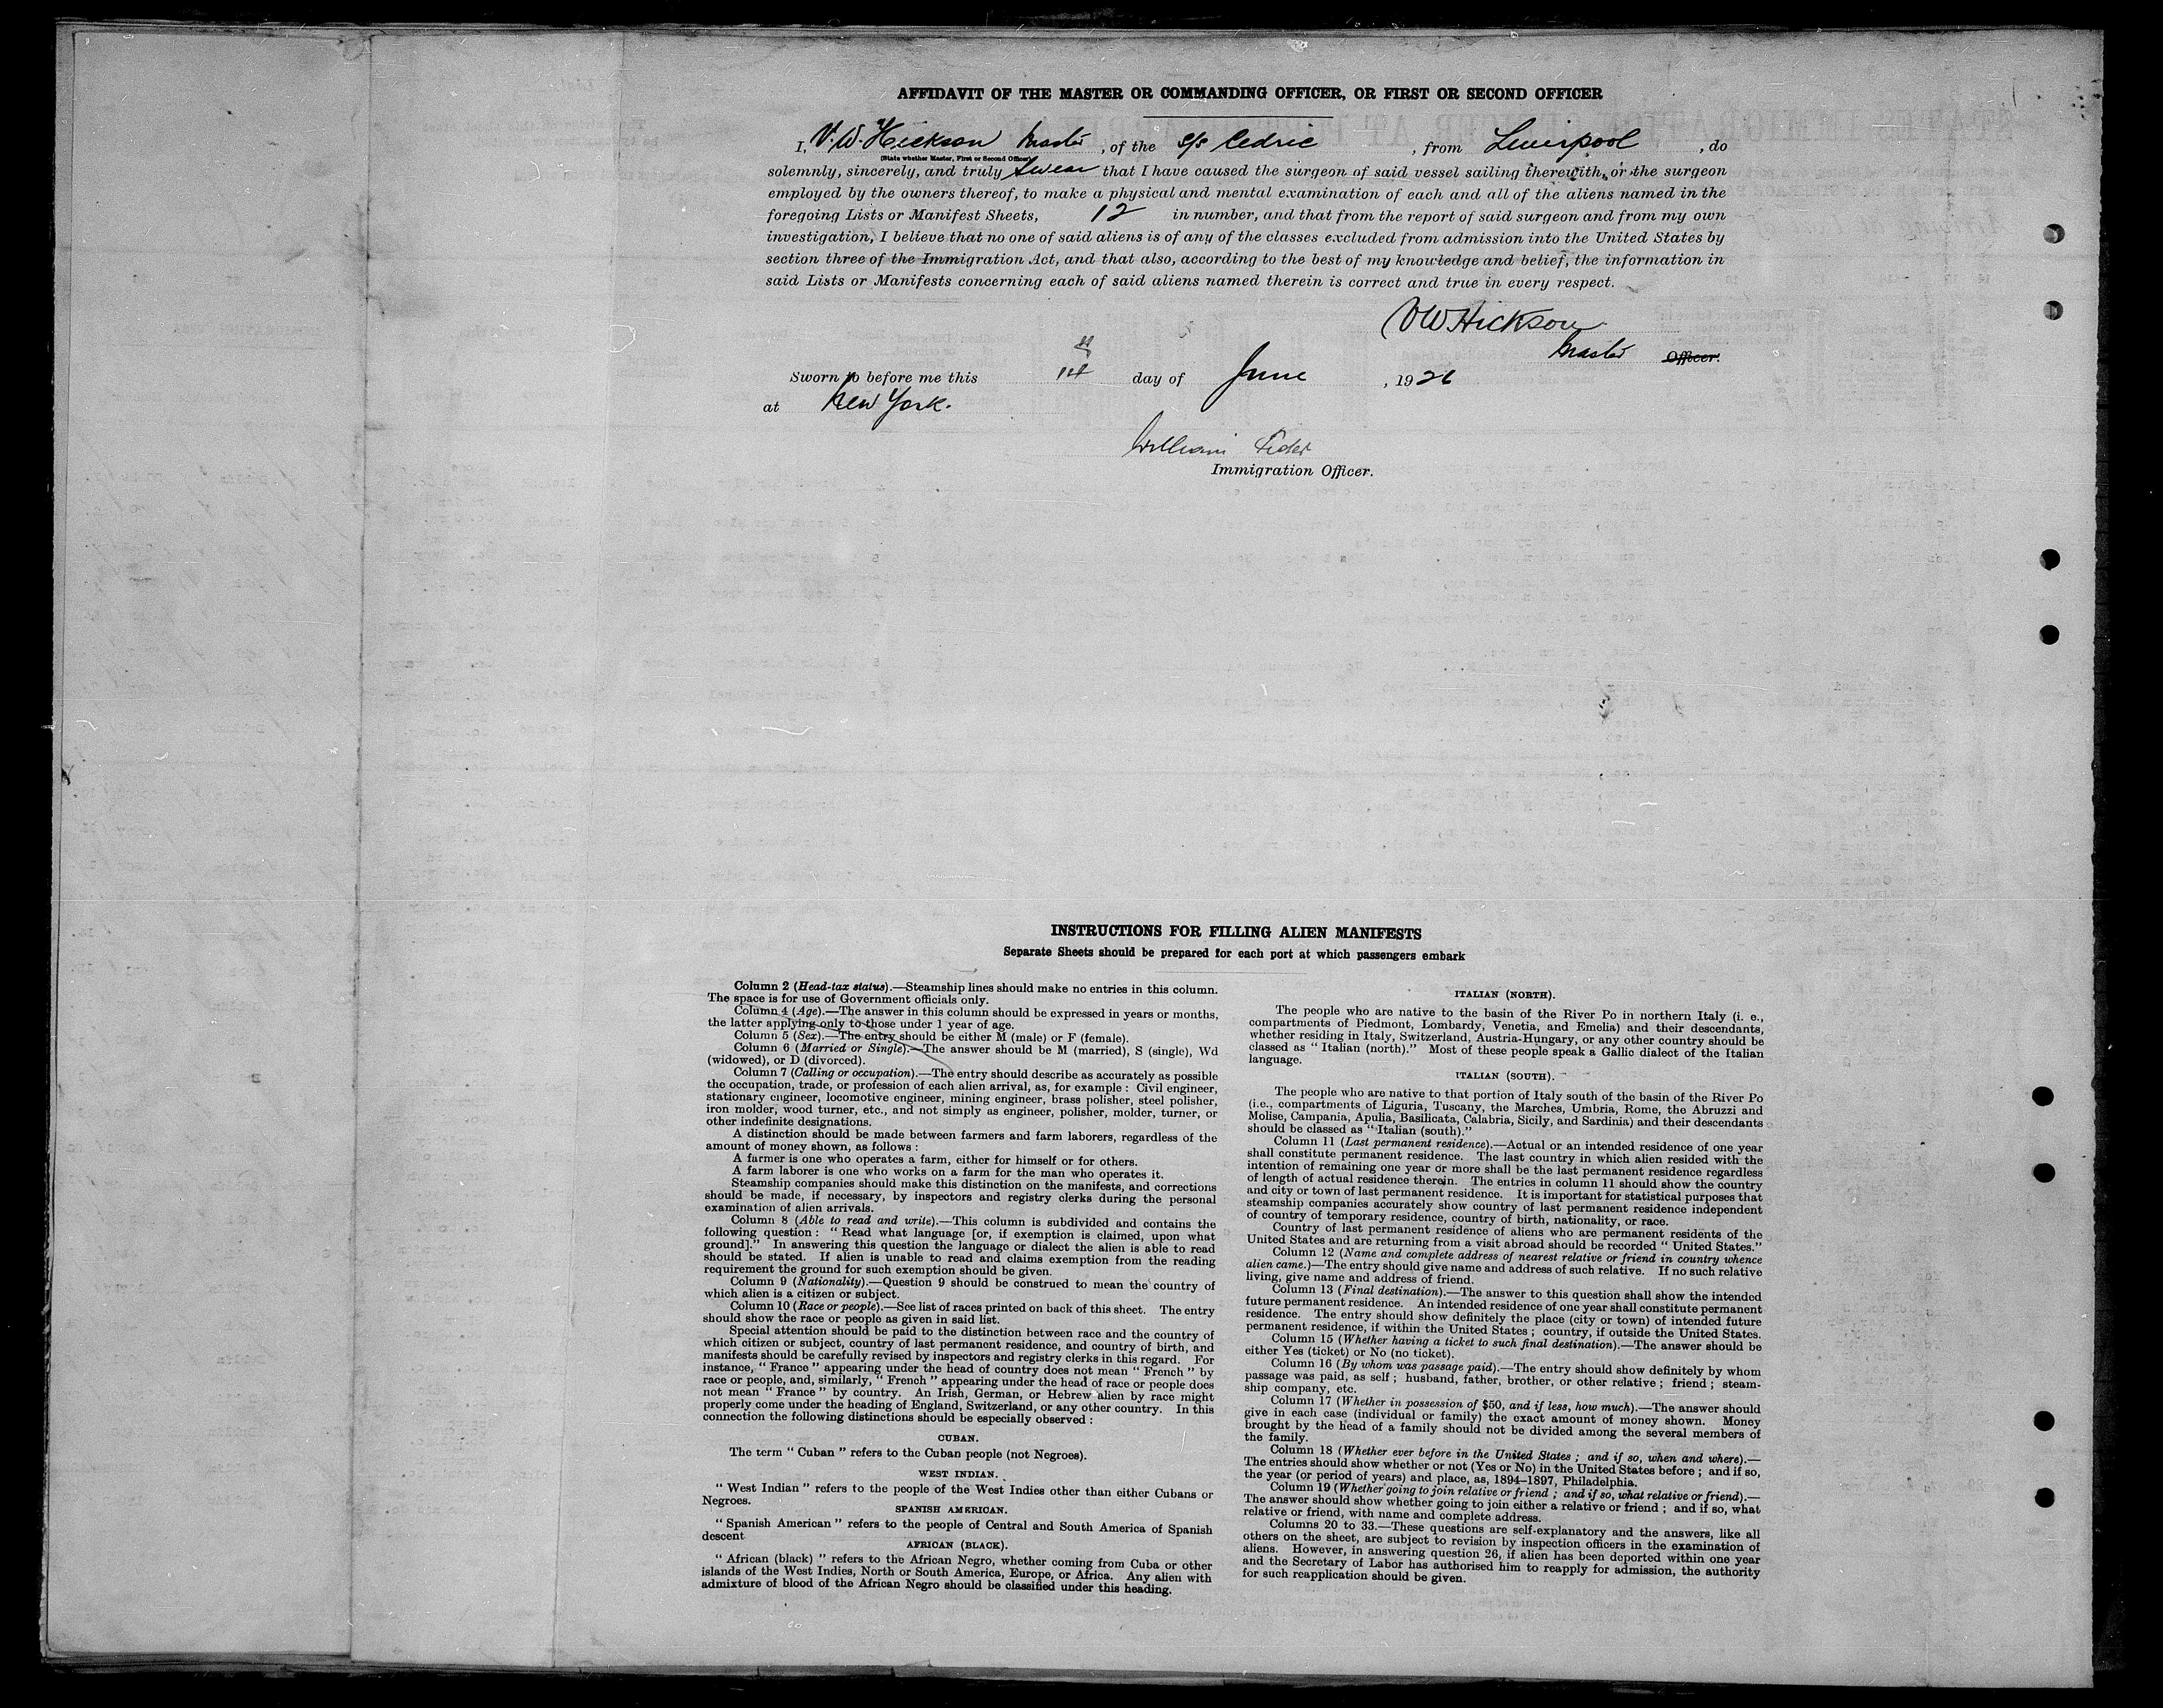 AFFIDAVIT OF THE MASTER OR COMMANDING OFFICER, OR FIRST OR SECOND OFFICER
I, V. W. Hickson Master, of the S/S Cedric, from Liverpool, do
(State whether Master, First or Second Officer)
solemnly, sincerely, and truly swear that I have caused the surgeon of said vessel sailing therewith, or the surgeon
employed by the owners thereof, to make a physical and mental examination of each and all of the aliens named in the
foregoing Lists or Manifest Sheets, 12 in number, and that from the report of said surgeon and from my own
investigation, I believe that no one of said aliens is of any of the classes excluded from admission into the United States by
section three of the Immigration Act, and that also, according to the best of my knowledge and belief, the information in
said Lists or Manifests concerning each of said aliens named therein is correct and true in every respect.
VWHickson
Master Officer.
Sworn to before me this day of June, 1926
at New York.
William
Immigration Officer.
INSTRUCTIONS FOR FILLING ALIEN MANIFESTS
Separate Sheets should be prepared for each port at which passengers embark
Column 2 (Head-tax status).—Steamship lines should make no entries in this column.
The space is for use of Government officials only.
Column 4 (Age).—The answer in this column should be expressed in years or months,
the latter applying only to those under 1 year of age.
Column 5 (Sex).—The entry should be either M (male) or F (female).
Column 6 (Married or Single).—The answer should be M (married), S (single), Wd
(widowed), or D (divorced).
Column 7 (Calling or occupation).—The entry should describe as accurately as possible
the occupation, trade, or profession of each alien arrival, as, for example : Civil engineer,
stationary engineer, locomotive engineer, mining engineer, brass polisher, steel polisher,
iron molder, wood turner, etc., and not simply as engineer, polisher, molder, turner, or
other indefinite designations.
A distinction should be made between farmers and farm laborers, regardless of the
amount of money shown, as follows :
A farmer is one who operates a farm, either for himself or for others.
A farm laborer is one who works on a farm for the man who operates it.
Steamship companies should make this distinction on the manifests, and corrections
should be made, if necessary, by inspectors and registry clerks during the personal
examination of alien arrivals.
Column 8 (Able to read and write).—This column is subdivided and contains the
following question : “ Read what language [or, if exemption is claimed, upon what
ground].” In answering this question the language or dialect the alien is able to read
should be stated. If alien is unable to read and claims exemption from the reading
requirement the ground for such exemption should be given.
Column 9 (Nationality).—Question 9 should be construed to mean the country of
which alien is a citizen or subject.
Column 10 (Race or people).—See list of races printed on back of this sheet. The entry
should show the race or people as given in said list.
Special attention should be paid to the distinction between race and the country of
which citizen or subject, country of last permanent residence, and country of birth, and
manifests should be carefully revised by inspectors and registry clerks in this regard. For
instance, “ France ” appearing under the head of country does not mean “ French ” by
race or people, and, similarly, “ French ” appearing under the head of race or people does
not mean “ France ” by country. An Irish, German, or Hebrew alien by race might
properly come under the heading of England, Switzerland, or any other country. In this
connection the following distinctions should be especially observed :
CUBAN.
The term “ Cuban ” refers to the Cuban people (not Negroes).
WEST INDIAN.
“ West Indian ” refers to the people of the West Indies other than either Cubans or
Negroes.
SPANISH AMERICAN.
“ Spanish American ” refers to the people of Central and South America of Spanish
descent
AFRICAN (BLACK).
“ African (black) ” refers to the African Negro, whether coming from Cuba or other
islands of the West Indies, North or South America, Europe, or Africa. Any alien with
admixture of blood of the African Negro should be classified under this heading.
ITALIAN (NORTH).
The people who are native to the basin of the River Po in northern Italy (i. e.,
compartments of Piedmont, Lombardy, Venetia, and Emelia) and their descendants,
whether residing in Italy, Switzerland, Austria-Hungary, or any other country should be
classed as “ Italian (north).” Most of these people speak a Gallic dialect of the Italian
language.
ITALIAN (SOUTH).
The people who are native to that portion of Italy south of the basin of the River Po
(i.e., compartments of Liguria, Tuscany, the Marches, Umbria, Rome, the Abruzzi and
Molise, Campania, Apulia, Basilicata, Calabria, Sicily, and Sardinia) and their descendants
should be classed as “ Italian (south).”
Column 11 (Last permanent residence).—Actual or an intended residence of one year
shall constitute permanent residence. The last country in which alien resided with the
intention of remaining one year or more shall be the last permanent residence regardless
of length of actual residence therein. The entries in column 11 should show the country
and city or town of last permanent residence. It is important for statistical purposes that
steamship companies accurately show country of last permanent residence independent
of country of temporary residence, country of birth, nationality, or race.
Country of last permanent residence of aliens who are permanent residents of the
United States and are returning from a visit abroad should be recorded “ United States.”
Column 12 (Name and complete address of nearest relative or friend in country whence
alien came.)—The entry should give name and address of such relative. If no such relative
living, give name and address of friend.
Column 13 (Final destination).—The answer to this question shall show the intended
future permanent residence. An intended residence of one year shall constitute permanent
residence. The entry should show definitely the place (city or town) of intended future
permanent residence, if within the United States ; country, if outside the United States.
Column 15 (Whether having a ticket to such final destination).—The answer should be
either Yes (ticket) or No (no ticket).
Column 16 (By whom was passage paid).—The entry should show definitely by whom
passage was paid, as self ; husband, father, brother, or other relative ; friend ; steam-
ship company, etc.
Column 17 (Whether in possession of $50, and if less, how much).—The answer should
give in each case (individual or family) the exact amount of money shown. Money
brought by the head of a family should not be divided among the several members of
the family.
Column 18 (Whether ever before in the United States ; and if so, when and where).—
The entries should show whether or not (Yes or No) in the United States before ; and if so,
the year (or period of years) and place, as, 1894–1897, Philadelphia.
Column 19 (Whether going to join relative or friend ; and if so, what relative or friend).—
The answer should show whether going to join either a relative or friend ; and if so, what
relative or friend, with name and complete address.
Columns 20 to 33.—These questions are self-explanatory and the answers, like all
others on the sheet, are subject to revision by inspection officers in the examination of
aliens. However, in answering question 26, if alien has been deported within one year
and the Secretary of Labor has authorised him to reapply for admission, the authority
for such reapplication should be given.